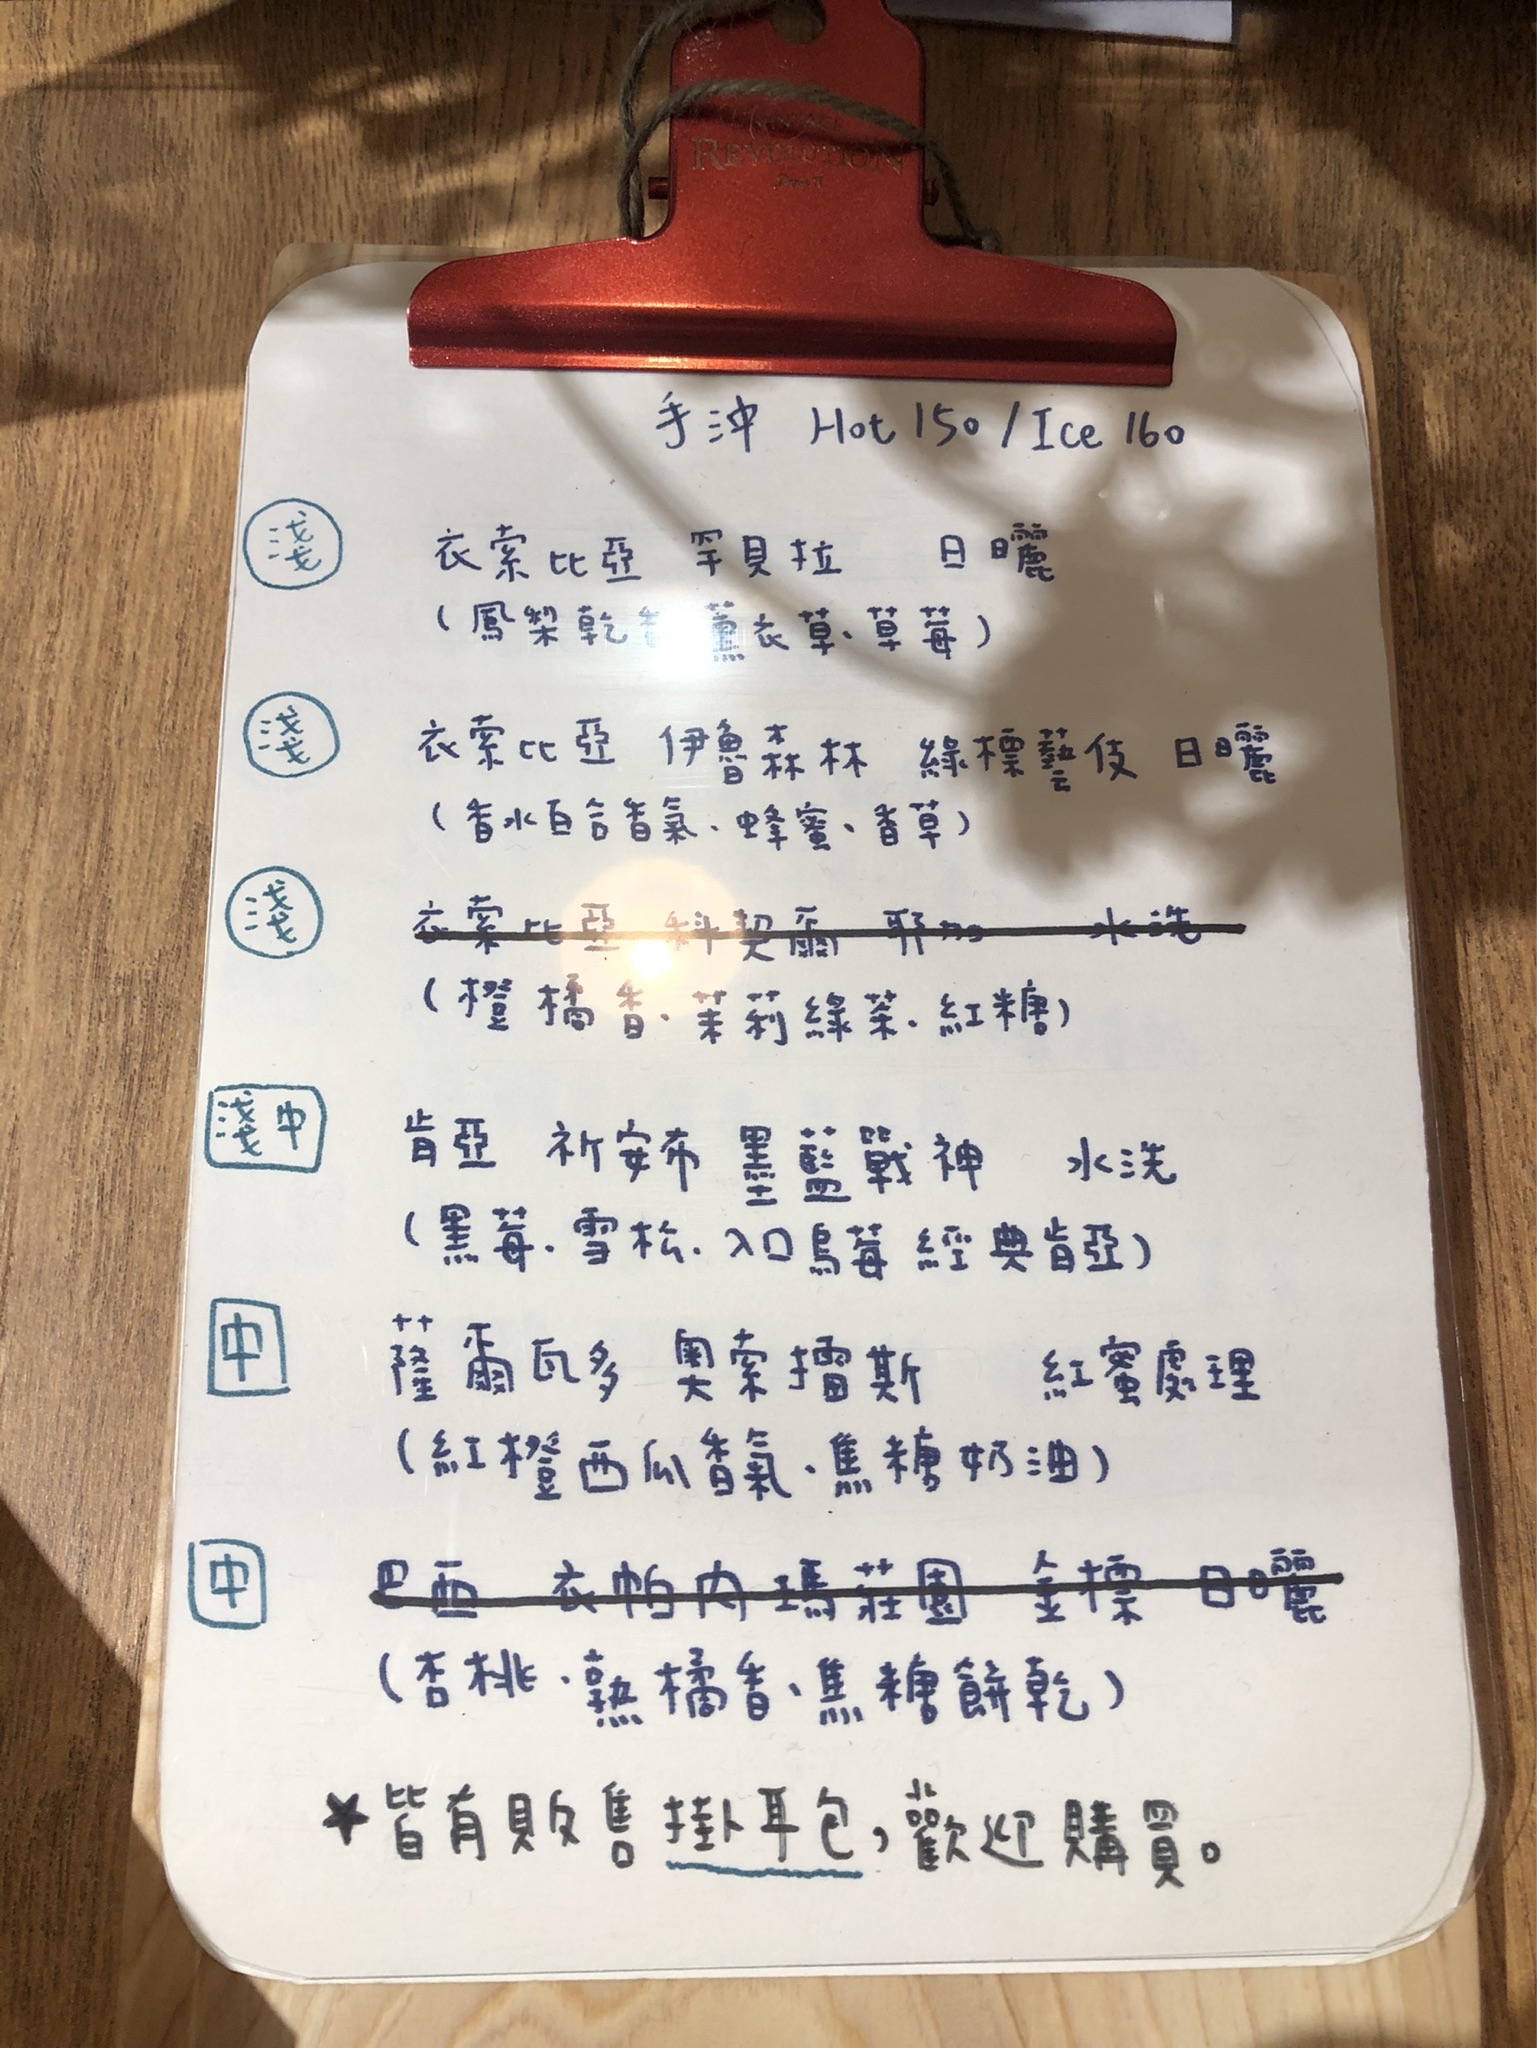 REVOLUTION
手沖 Hot 150 / Ice 160
淺 衣索比亞 罕貝拉 日曬
(鳳梨乾香、薰衣草、草莓)
淺 衣索比亞 伊魯森林 綠標藝伎 日曬
(香水百合香氣、蜂蜜、香草)
淺 衣索比亞 科契爾 耶加 水洗
(橙橘香、茉莉綠茶、紅糖)
淺中 肯亞 祈安布 墨藍戰神 水洗
(黑莓、雪松、入口烏莓 經典肯亞)
中 薩爾瓦多 奧索擂斯 紅蜜處理
(紅橙西瓜香氣、焦糖奶油)
中 巴西 衣帕內瑪莊園 金標 日曬
(杏桃、熟橘香、焦糖餅乾)
★皆有販售掛耳包,歡迎購買。